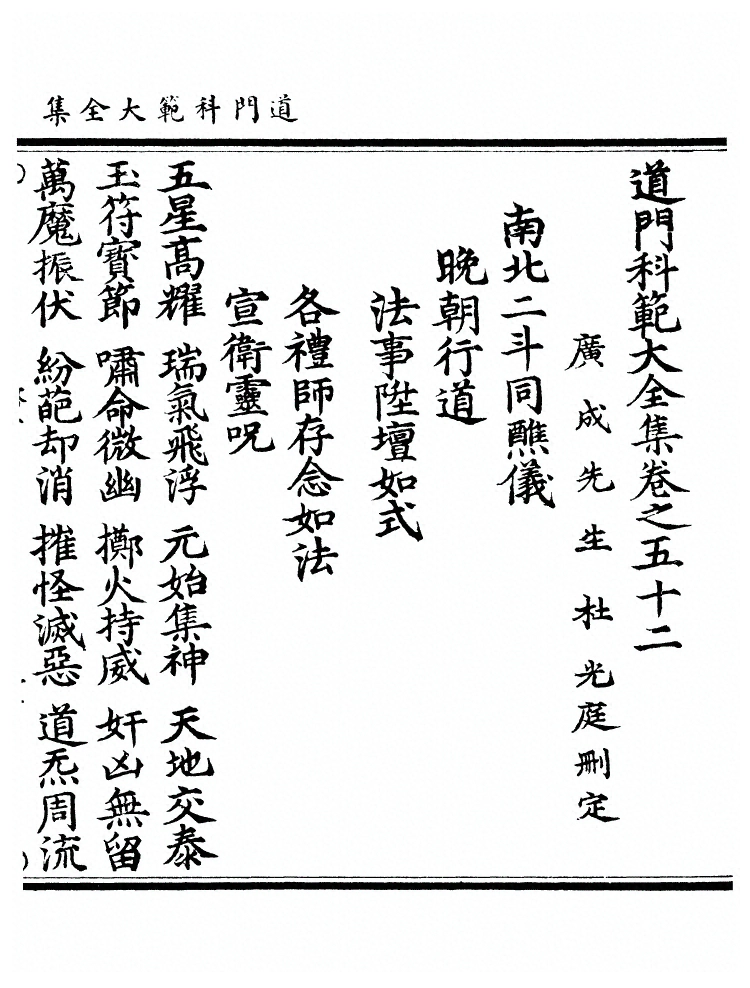 道門科範大全集
道門科範大全集卷之五十二
廣成先生杜光庭刪定
南北二斗同醮儀
晚朝行道
法事陞壇如式
各禮師存念如法
宣衛靈呪
五星高耀 瑞氣飛浮 元始集神 天地交泰
玉符寶節 嘯命微幽 擲火持威 奸凶無留
萬魔振伏 紛葩却消 摧怪滅惡 道炁周流